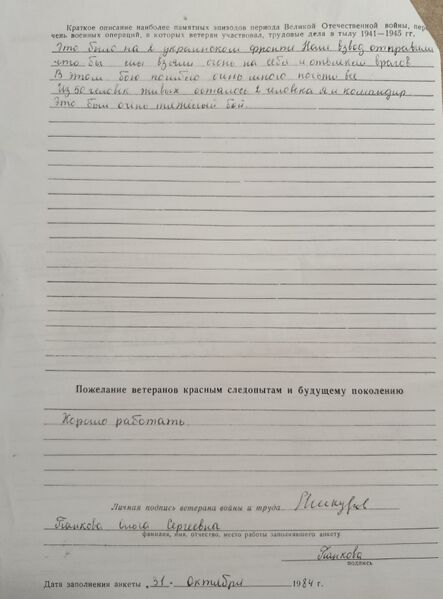 Краткое описание наиболее памятных эпизодов периода Великой Отечественной войны, пере
чень военных операций, в которых ветеран участвовал, трудовые дела в тылу 1941—1945 гг.
Это было на 2 украинском фронте Наш взвод отправили
что бы мы взяли огонь на себя и отвлекли врагов
В этом бою погибло очно много почти все
Из 50 человек живых осталось 2 человека я и командир.
Это был очно тяжёлый бой.
Пожелание ветеранов красным следопытам и будущему поколению
Хорошо работать.
Личная подпись ветерана войны и труда
Панкова Ольга Сергеевна
фамилия, имя, отчество, место работы заполнявшего анкету
Панкова
подпись
Дата заполнения анкеты 31 - Октября 1984 г.